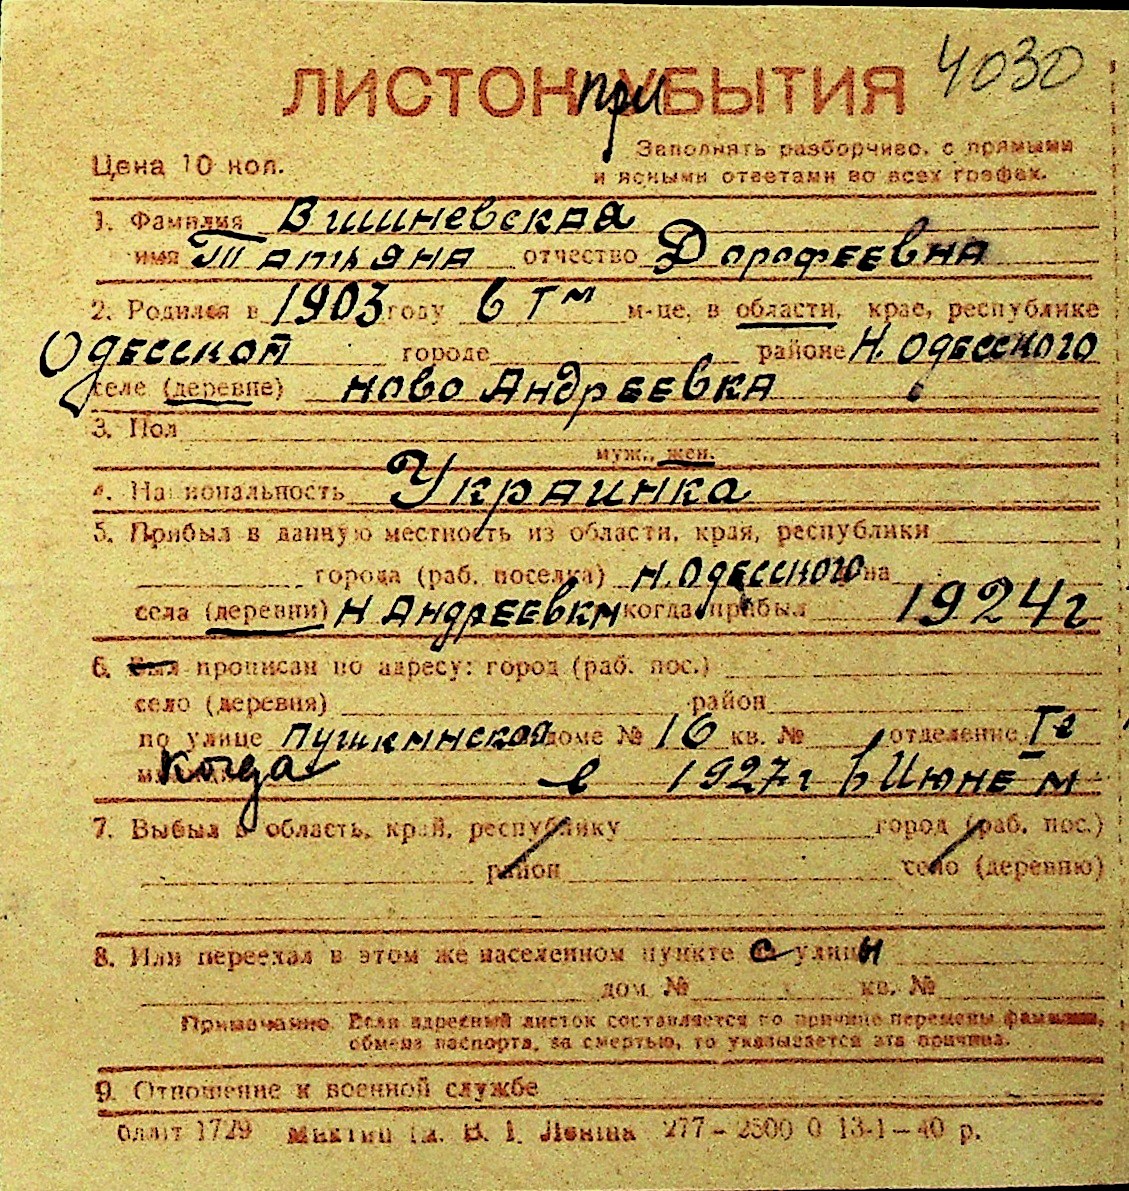 4030
ЛИСТОК при УБЫТИЯ
Цена 10 коп.
Заполнять разборчиво, с прямыми
и ясными ответами во всех графах.
1. Фамилия Вишневская
имя Татьяна отчество Дорофеевна
2. Родился в 1903 году в м-це, в области, крае, республике
Одесской городе районе Н. Одесского
селе (деревне) ново Андреевка
3. Пол
муж., жен.
4. Национальность Украинка
5. Прибыл в данную местность из области, края, республики
города (раб. поселка) Н. Одесского на
села (деревни) Н Андреевки когда прибыл 1924 г
6. Был прописан по адресу: город (раб. пос.)
село (деревня) район
по улице Пушкинской доме № 16 кв. № отделение Iе
когда в 1927 г в Июне м
7. Выбыл в область, край, республику город (раб. пос.)
район село (деревню)
8. Или переехал в этом же населенном пункте с улицы
дом № кв. №
Примечание. Если адресный листок составляется по причине перемены фамилии,
обмена паспорта, за смертью, то указывается эта причина.
9. Отношение к военной службе
1729 В. І. Леніна 277-2500 0 13-1-40 р.